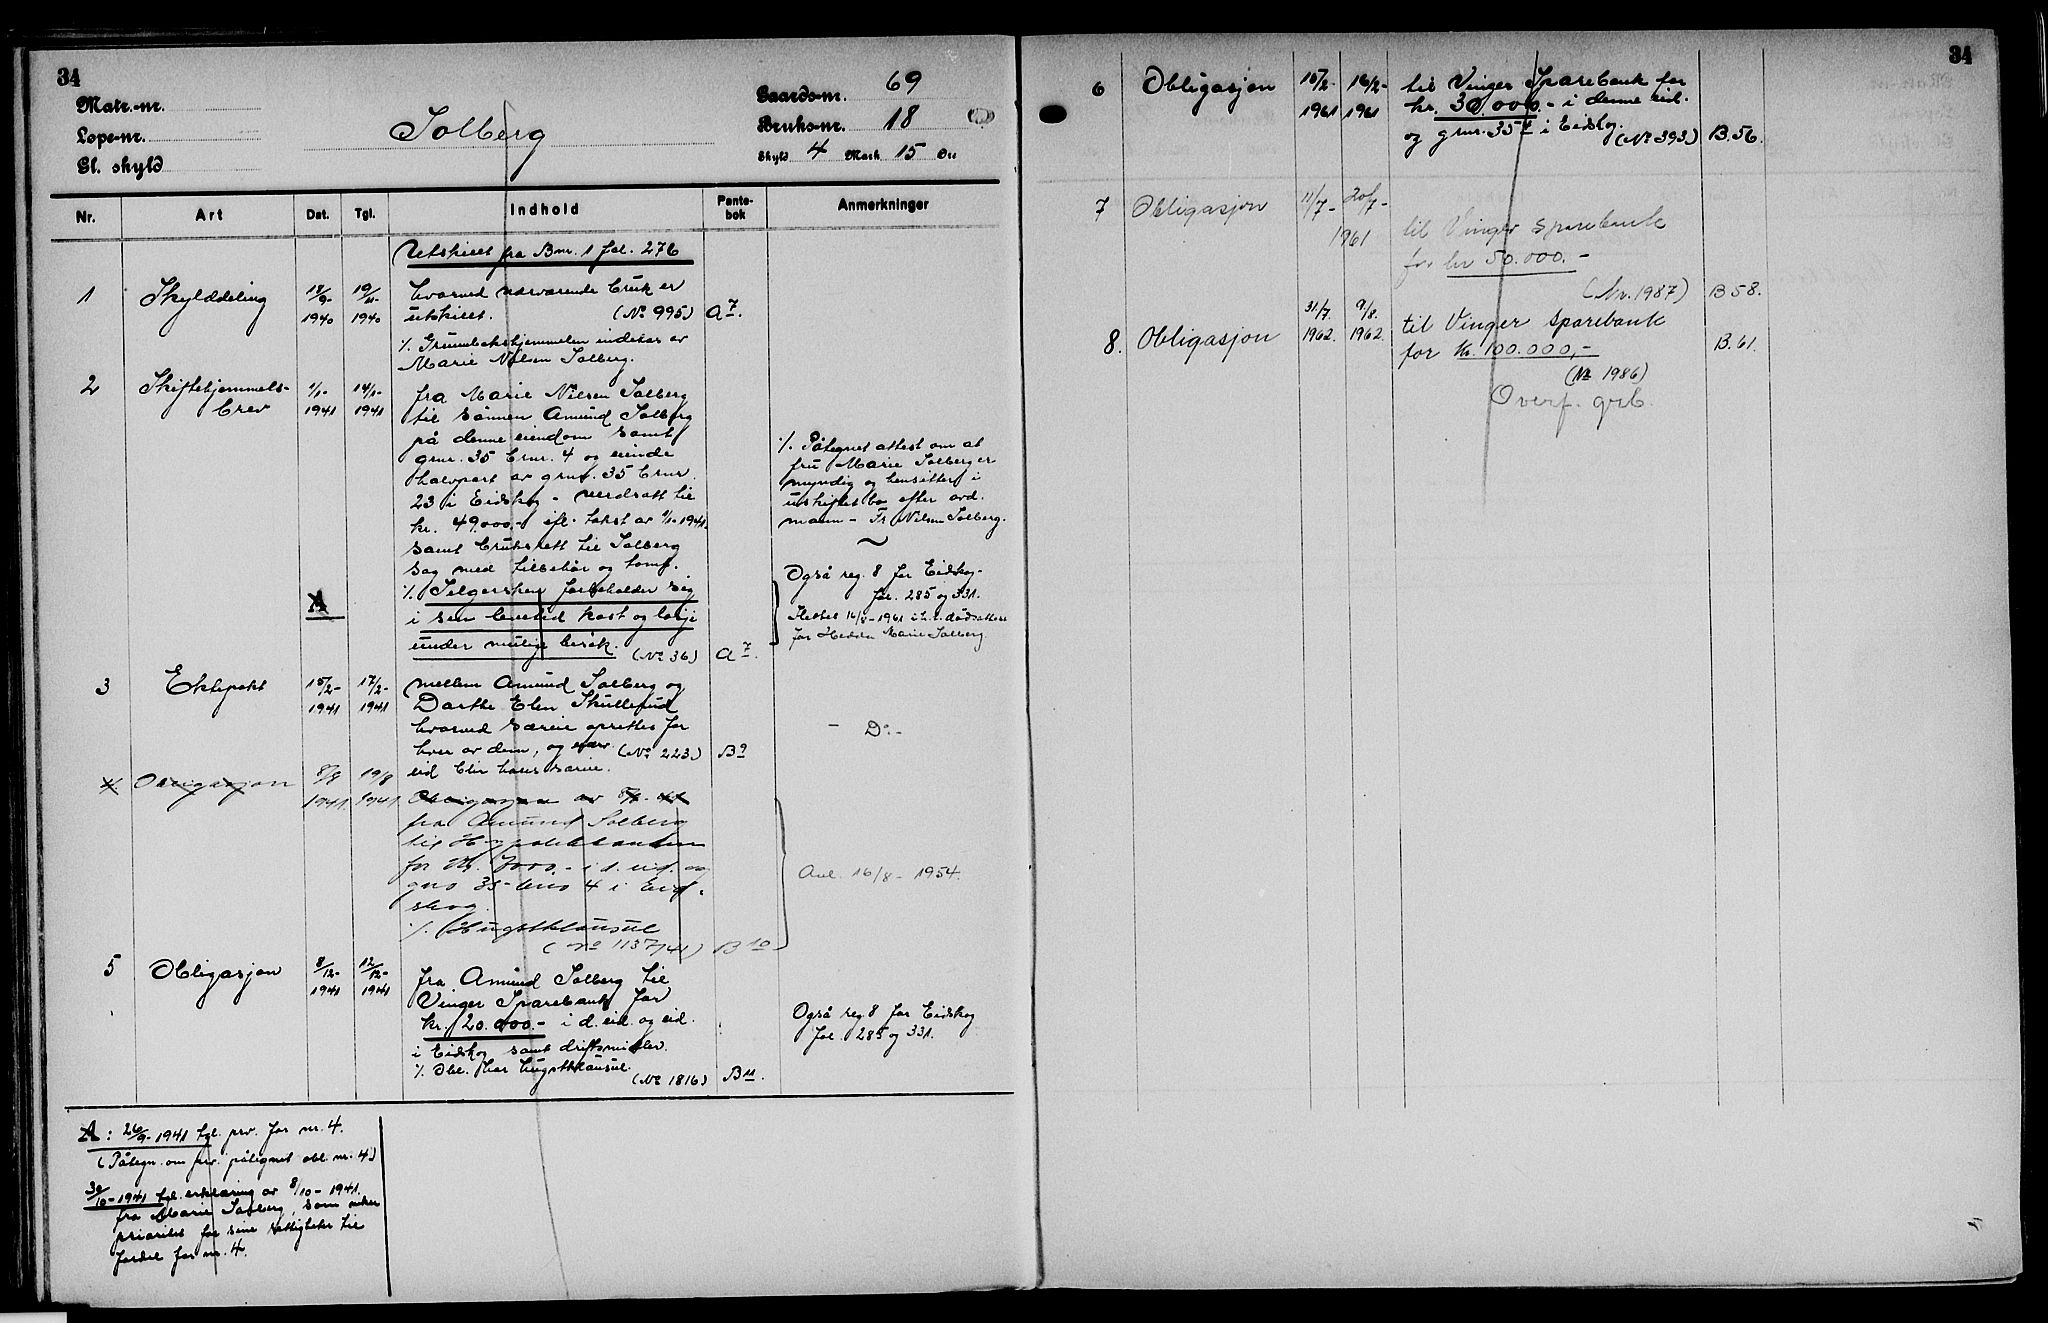 34
Matr.-nr.
Løpe-nr.
Gl. skyld
Solberg
Gaards-nr. 69
Bruks-nr. 18
Skyld 4 Mark 15 Øre
Nr. Art Dat. Tgl. Indhold Pante-bok Anmerkninger
Utskilt fra Bnr. 1 fol. 276
1 Skylddeling 18/9- 1940 19/11- 1940 hvorved nærværende bruk er
utskilt. (No 995) A 7.
% Grunnbokshjemmelen indehas av
Marie Nilsen Solberg.
2 Skiftehjemmels-
brev 9/1- 1941 14/1- 1941 fra Marie Nilsen Solberg
til sønnen Amund Solberg
på denne eiendom samt
gnr. 35 bnr. 4 og eiende
halvpart av gnr. 35 bnr.
23 i Eidskog - verdsatt til
kr. 49000.- ifl. takst av 9/1-1941
samt bruksrett til Solberg
sag med tilbehør og tomt.
% Selgersken forbeholder sig
i sin levetid kost og losje
under mulige besøk.
(No 36) A 7.
A
% Påtegnet attest om at
fru Marie Solberg er
myndig og hensitter i
uskiftet bo efter avd.
mann - Fr. Nilsen Solberg.
Også reg. 8 for Eidskog-
fol. 285 og 331.
Slettet 16/8-1961 i h.t. dødsattest
for Hedda Marie Solberg
3 Ektepakt 15/2- 1941 17/2- 1941 mellem Amund Solberg og
Dorthe Elen Skullerud
hvorved særeie oprettes for
hver av dem, og nærv. (No 223) B 9
eid blir hans særeie.
- Do -
4. Obligasjon 8/8 1941 19/8 1941 Obligasjon av 8/8-41
fra Amund Solberg
til Hypotekbanken
for kr. 7000.- i d. eid. og
gno 35 bno 4 i Eid-
skog.
% Hugstklausul
(No 1137/41) B 10
Avl. 16/8-1954.
5 Obligasjon 8/12- 1941 12/12- 1941 fra Amund Solberg til
Vinger Sparebank for
kr. 20.000.- i d. eid. og eid.
i Eidskog samt driftsmidler.
% Obl. har hugstklausul.
(No 1816) B 11.
Også reg. 8 for Eidskog
fol. 285 og 331.
A: 26/9-1941 tgl. prv. for nr. 4.
(Påtegn. om prv. påtegnet obl. nr. 4)
30/10-1941 tgl. erklæring av 8/10-1941.
fra Marie Solberg, som viker
prioritet for sine rettigheter til
fordel for nr. 4.
34
6 Obligasjon 15/2- 1961 16/2- 1961 til Vinger Sparebank for
kr. 30.000.- i denne eid.
og gnr. 35 4 i Eidskog.
(No 393) B.56.
7 Obligasjon 11/7- 20/7- 1961 til Vinger sparebank
for kr 50.000.-
(Nr. 1987) B 58.
8. Obligasjon 31/7. 1962. 9/8. 1962. til Vinger sparebank
for kr. 100.000,- B.61.
(No 1986)
Overf. grb.